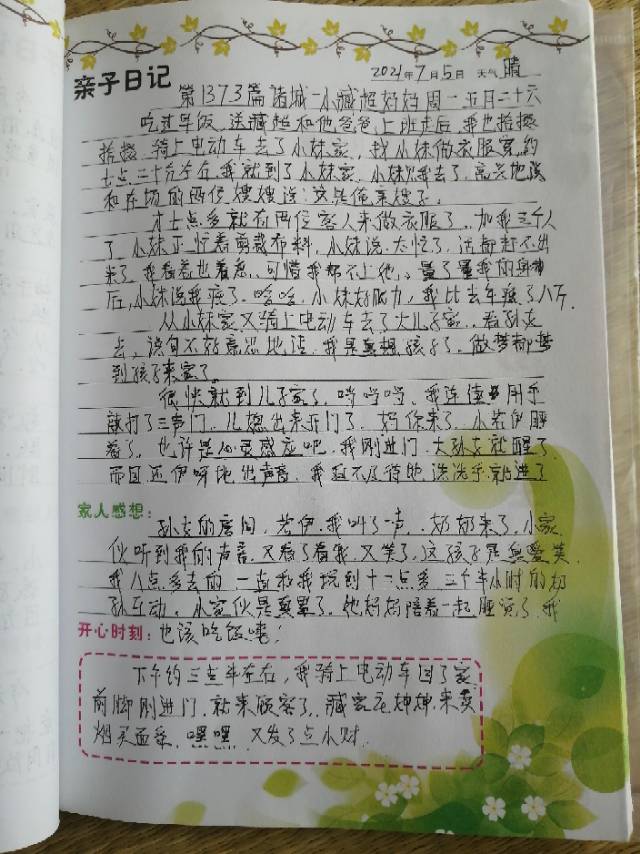 亲子日记 2021年7月5日 天气 晴
第1373篇 诸城-小臧超妈妈 周一 五月二十六
吃过早饭,送臧超和他爸爸上班走后,我也拾掇
拾掇,骑上电动车去了小妹家,找小妹做衣服穿,约
七点三十分左右,我就到了小妹家,小妹见我去了,高兴地说
和在场的两位嫂嫂说:这是俺亲嫂子。
才七点多就有两位客人来做衣服了,加我三个人
了,小妹正忙着剪裁布料,小妹说,太忙了,活都赶不出
来了,我看着也着急,可惜我帮不上他,量了量我的身
后,小妹说我瘦了,哈哈,小妹好眼力,我比去年瘦了八斤.
从小妹家又骑上电动车去了大儿子家,看孙子
去,说句不好意思地话,我是真想孩子了,做梦都梦
到孩子来家了。
很快就到儿子家了,哨哨哨,我连续用手
敲打了三声门,儿媳出来开门了,妈你来了,小若伊睡
着了,也许是心灵感应吧,我刚进门,大孙女就醒了
而且还伊呀地出声音,我迫不及待地洗洗手就进了
家人感想:
孙女的房间,若伊,我叫了一声,奶奶来了,小家
伙听到我的声音,又看了看我,又笑了,这孩子是真爱笑
我八点多去的,一直和我玩到十一点多,三个半小时的奶
孙互动,小家伙是真累了,他妈妈陪着一起睡觉了,我
开心时刻:也该吃饭噢!
下午约三点半左右,我骑上电动车回了家
前脚刚进门,就来顾客了,臧家庄婶婶,来卖
烟买面条,嘿嘿,又发了点小财.